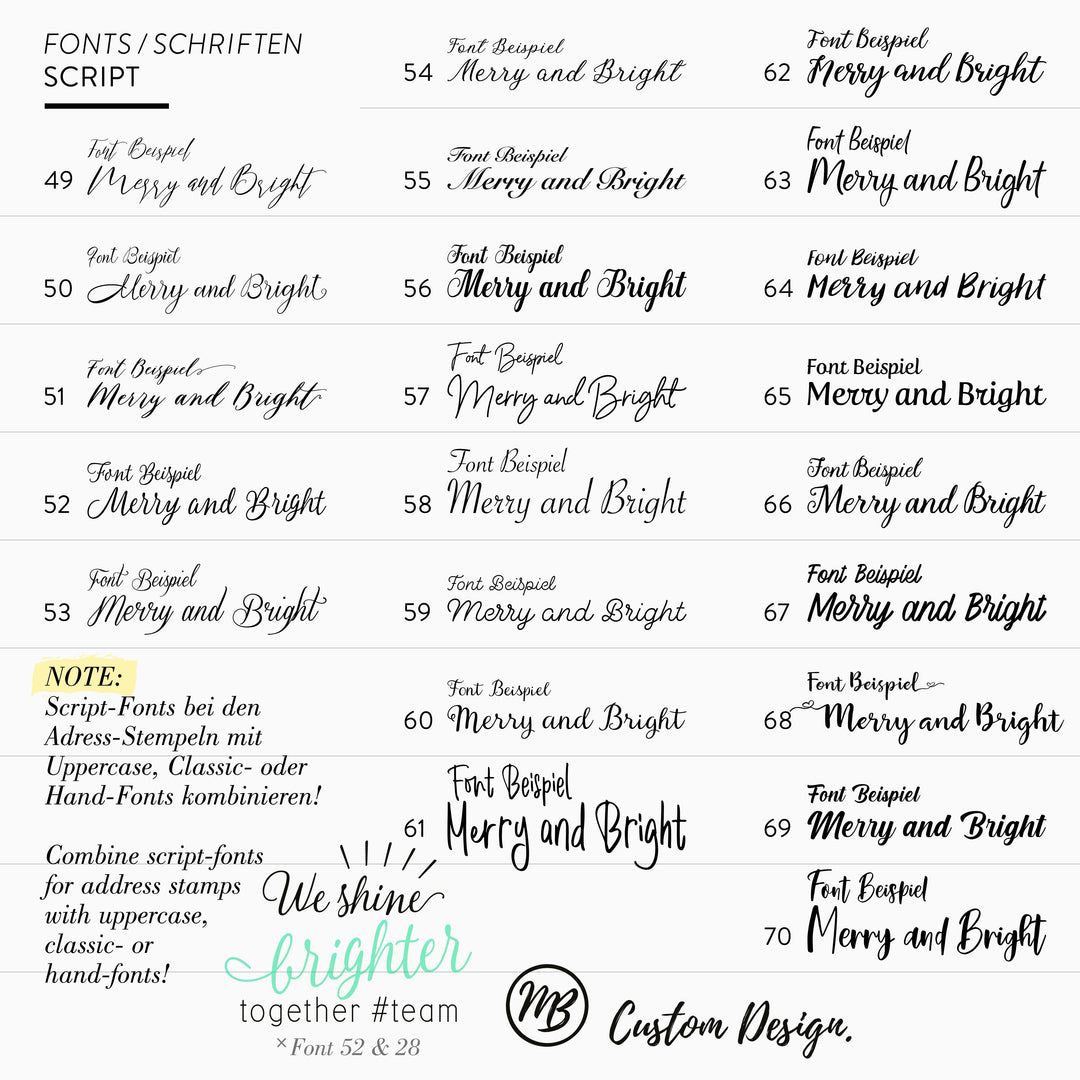 FONTS / SCHRIFTEN
SCRIPT
Font Beispiel
49 Merry and Bright
Font Beispiel
50 Merry and Bright
Font Beispiel
51 Merry and Bright
Font Beispiel
52 Merry and Bright
Font Beispiel
53 Merry and Bright
NOTE:
Script-Fonts bei den
Adress-Stempeln mit
Uppercase, Classic- oder
Hand-Fonts kombinieren!
Combine script-fonts
for address stamps
with uppercase,
classic- or
hand-fonts!
Font Beispiel
54 Merry and Bright
Font Beispiel
55 Merry and Bright
Font Beispiel
56 Merry and Bright
Font Beispiel
57 Merry and Bright
Font Beispiel
58 Merry and Bright
Font Beispiel
59 Merry and Bright
Font Beispiel
60 Merry and Bright
Font Beispiel
61 Merry and Bright
We shine
brighter
together #team
× Font 52 & 28
Font Beispiel
62 Merry and Bright
Font Beispiel
63 Merry and Bright
Font Beispiel
64 Merry and Bright
Font Beispiel
65 Merry and Bright
Font Beispiel
66 Merry and Bright
Font Beispiel
67 Merry and Bright
Font Beispiel
68 Merry and Bright
Font Beispiel
69 Merry and Bright
Font Beispiel
70 Merry and Bright
MB Custom Design.